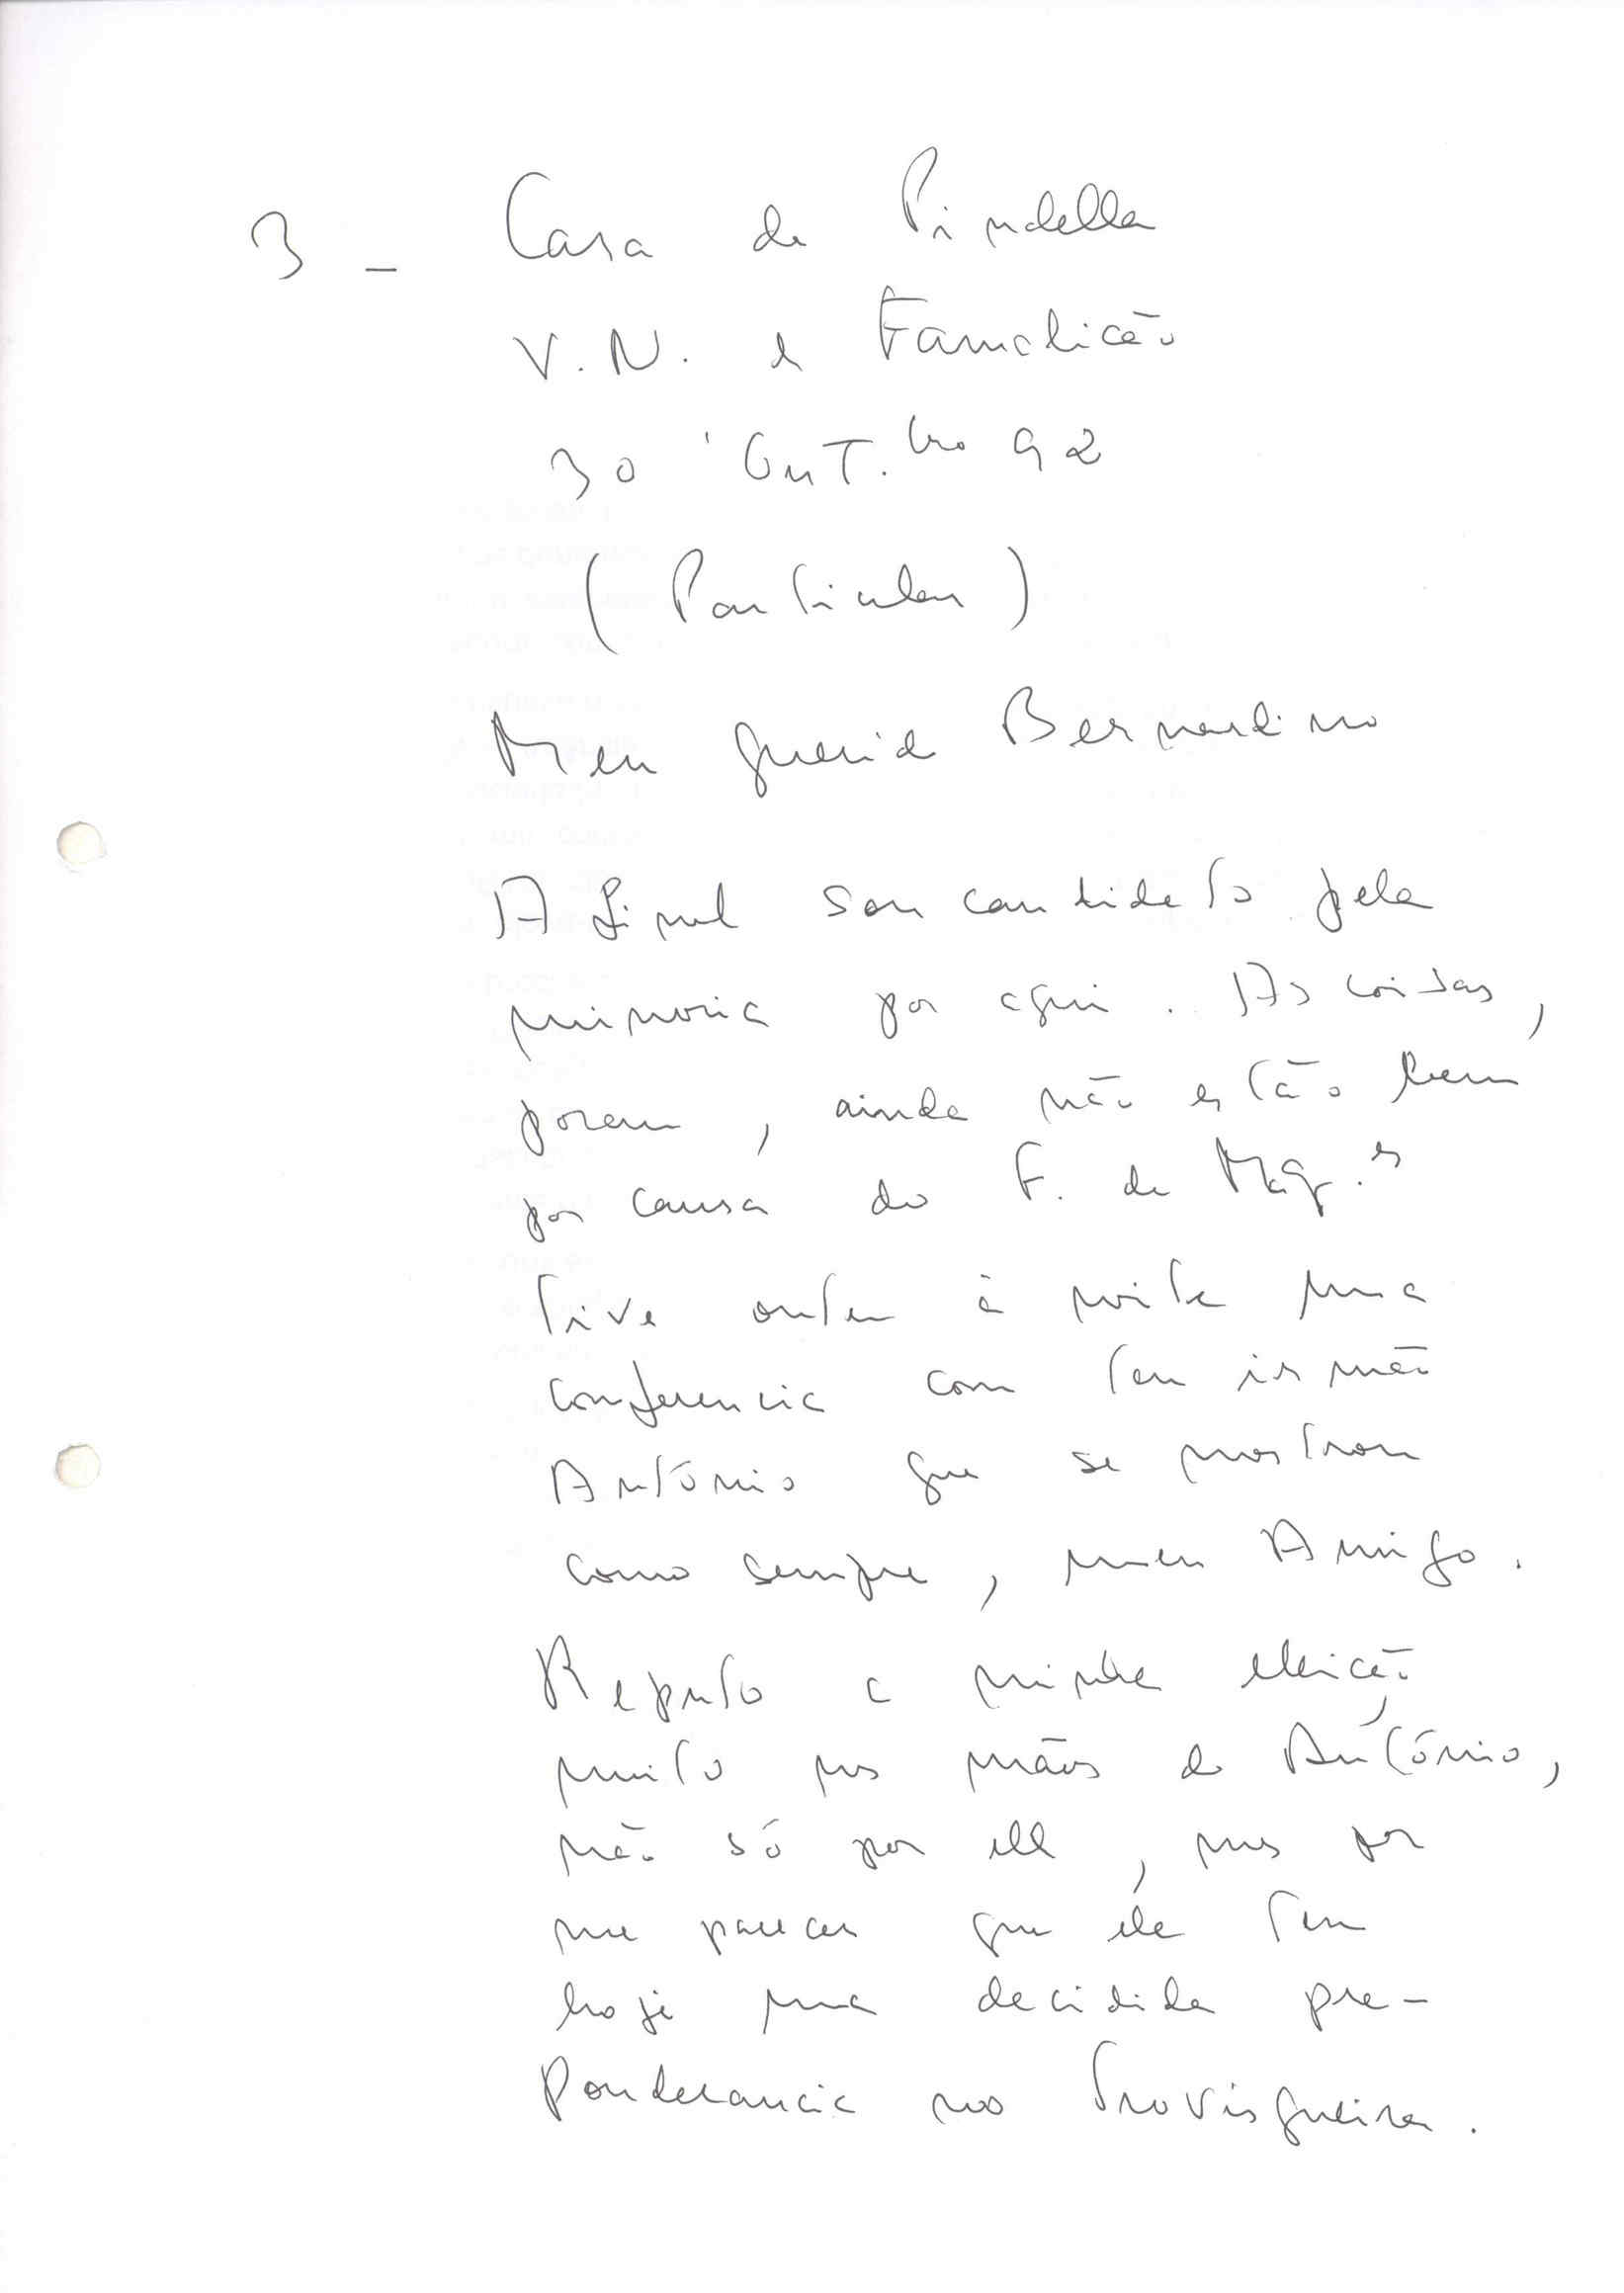 3 - Casa de Pindella
V. N. de Famalicão
30 Out.bro 92
(Particular)
Meu querido Bernardino
Afinal sou candidato pela
minoria por aqui. As coisas,
porem, ainda não estão bem
por causa do F. de Mag.es
Tive ontem à noite uma
conferencia com teu irmão
António que se mostrou
como sempre, meu Amigo.
Reputo a minha eleição
muito nas mãos do António,
não só por elle, mas por
me parecer que ele tem
hoje uma decidida pre-
ponderancia no Trovisqueira.